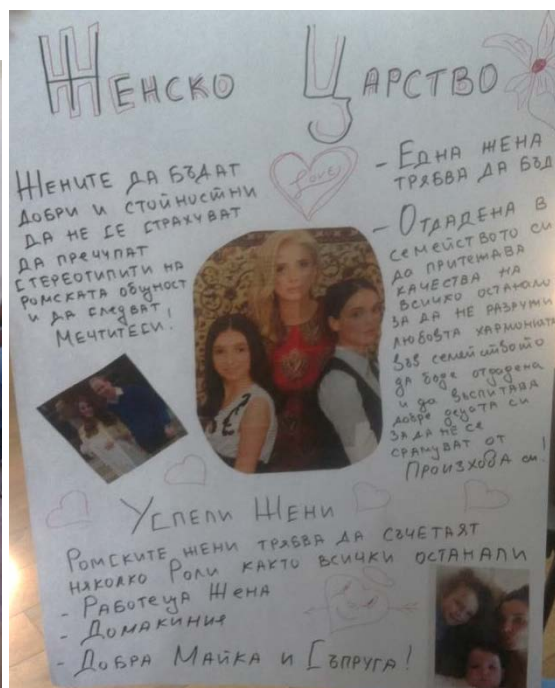 Женско Царство
Жените да бъдат
добри и стойностни
да не се страхуват
да пречупат
стереотипити на
ромската общност
и да следват
Мечтитеси!
Love
- Една жена
трябва да бъд
- Отдадена в
семейството си
да притежава
качества на
всичко останало
за да не разруши
любовта хармонията
във семейството
да бъде отдадена
и да възпитава
добре децата си
за да не се
срамуват от
Произхода си!
Успели Жени
Ромските жени трябва да съчетаят
няколко Роли както всички останали
- Работеща Жена
- Домакиния
- Добра Майка и Съпруга!